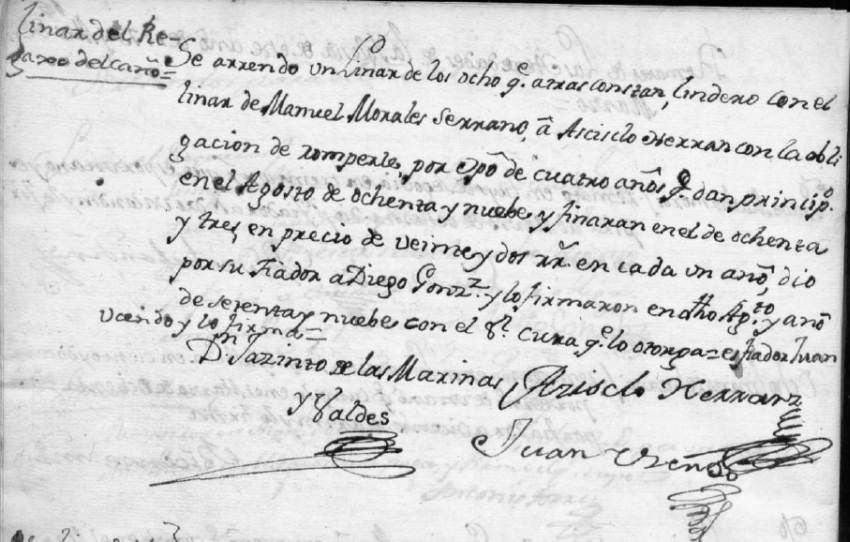 Linar del Re-
gaxo del caño=
Se arrendo un Linar de los ocho q.e atras constan, lindero con el
linar de Manuel Morales Serrano, â Asciselo Herran con la obli
gacion de romperle, por espō de cuatro años q dan princip.o
en el Agosto de ochenta y nuebe y finaran en el de ochenta
y tres, en precio de veinte y dos rr.s en cada un año, dio
por su Fiador a Diego Gonz.z y lo firmaron en dho Ag.to y año
de setenta y nuebe con el s.r cura q.e lo otorga = es fiador Juan
Ucendo y lo firma=
D.n Jazinto de las Marinas
y Valdes
Aziselo Herranz
Juan Usendo